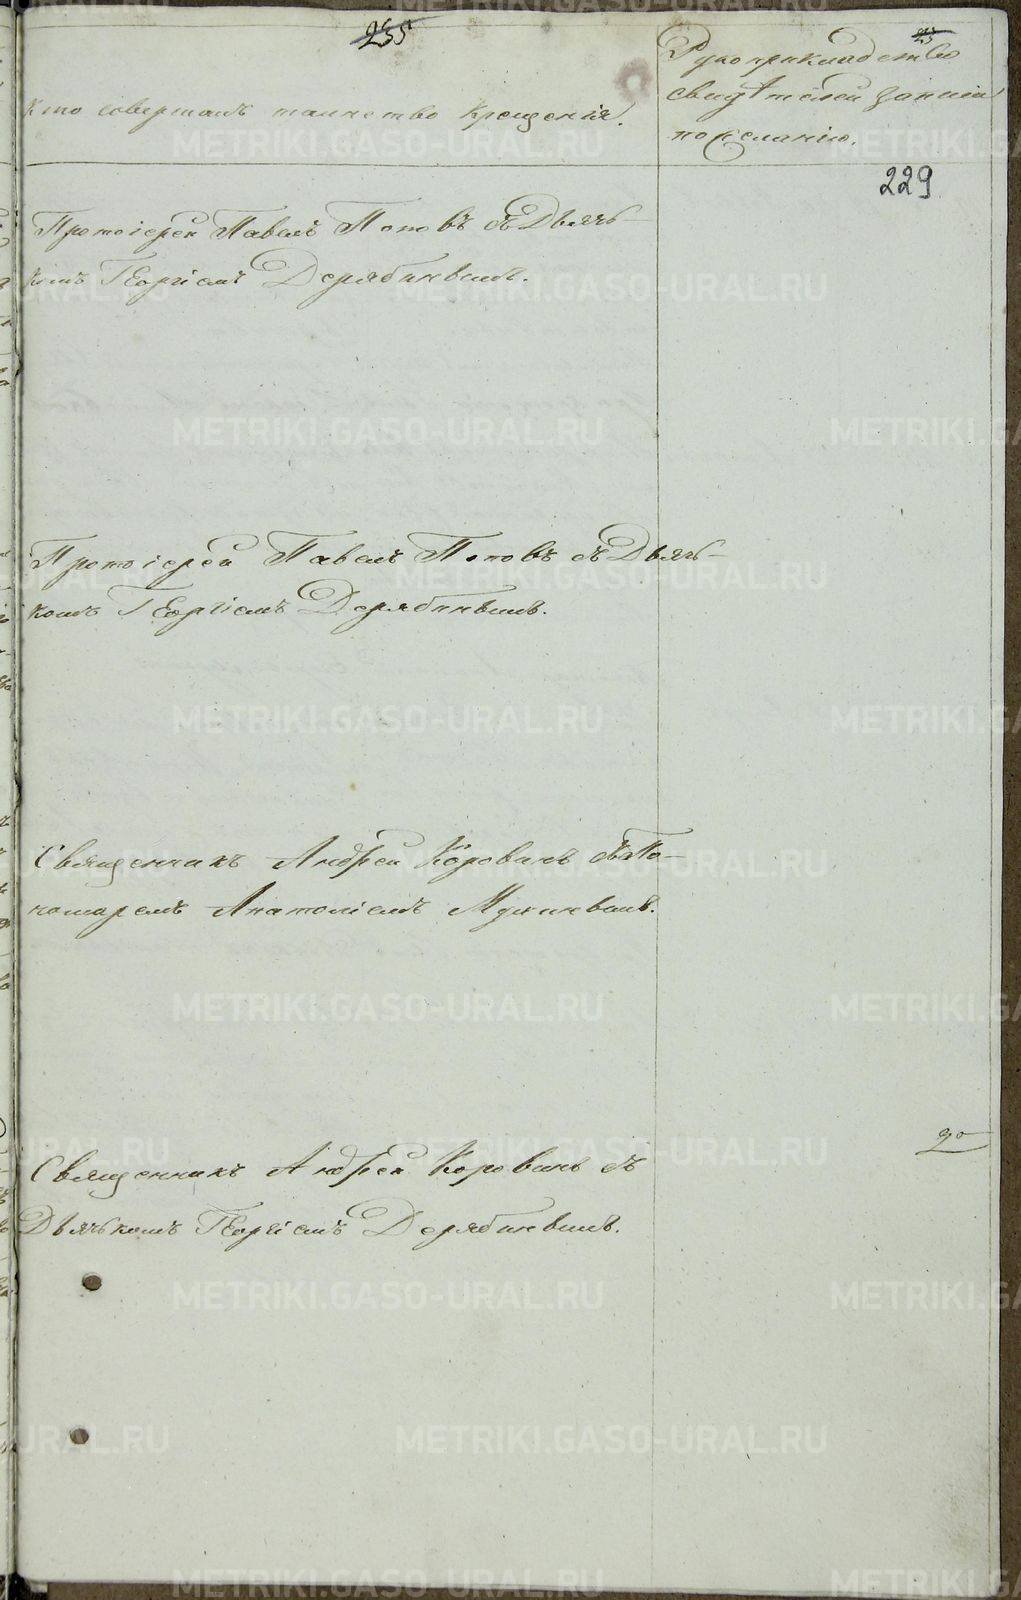 255
25
Кто совершалъ таинство крещенія.
Рукоприкладство
свидѣтелей записи
по желанію.
229
Протоіерей Павелъ Поповъ съ Дьяч-
комъ Георгіемъ Дерябинымъ.
Протоіерей Павелъ Поповъ съ Дьяч-
комъ Георгіемъ Дерябинымъ.
Священникъ Андрей Коровинъ съ По-
номаремъ Анатоліемъ
Священникъ Андрей Коровинъ съ
Дьячкомъ Георгіемъ Дерябинымъ.
METRIKI.GASO-URAL.RU